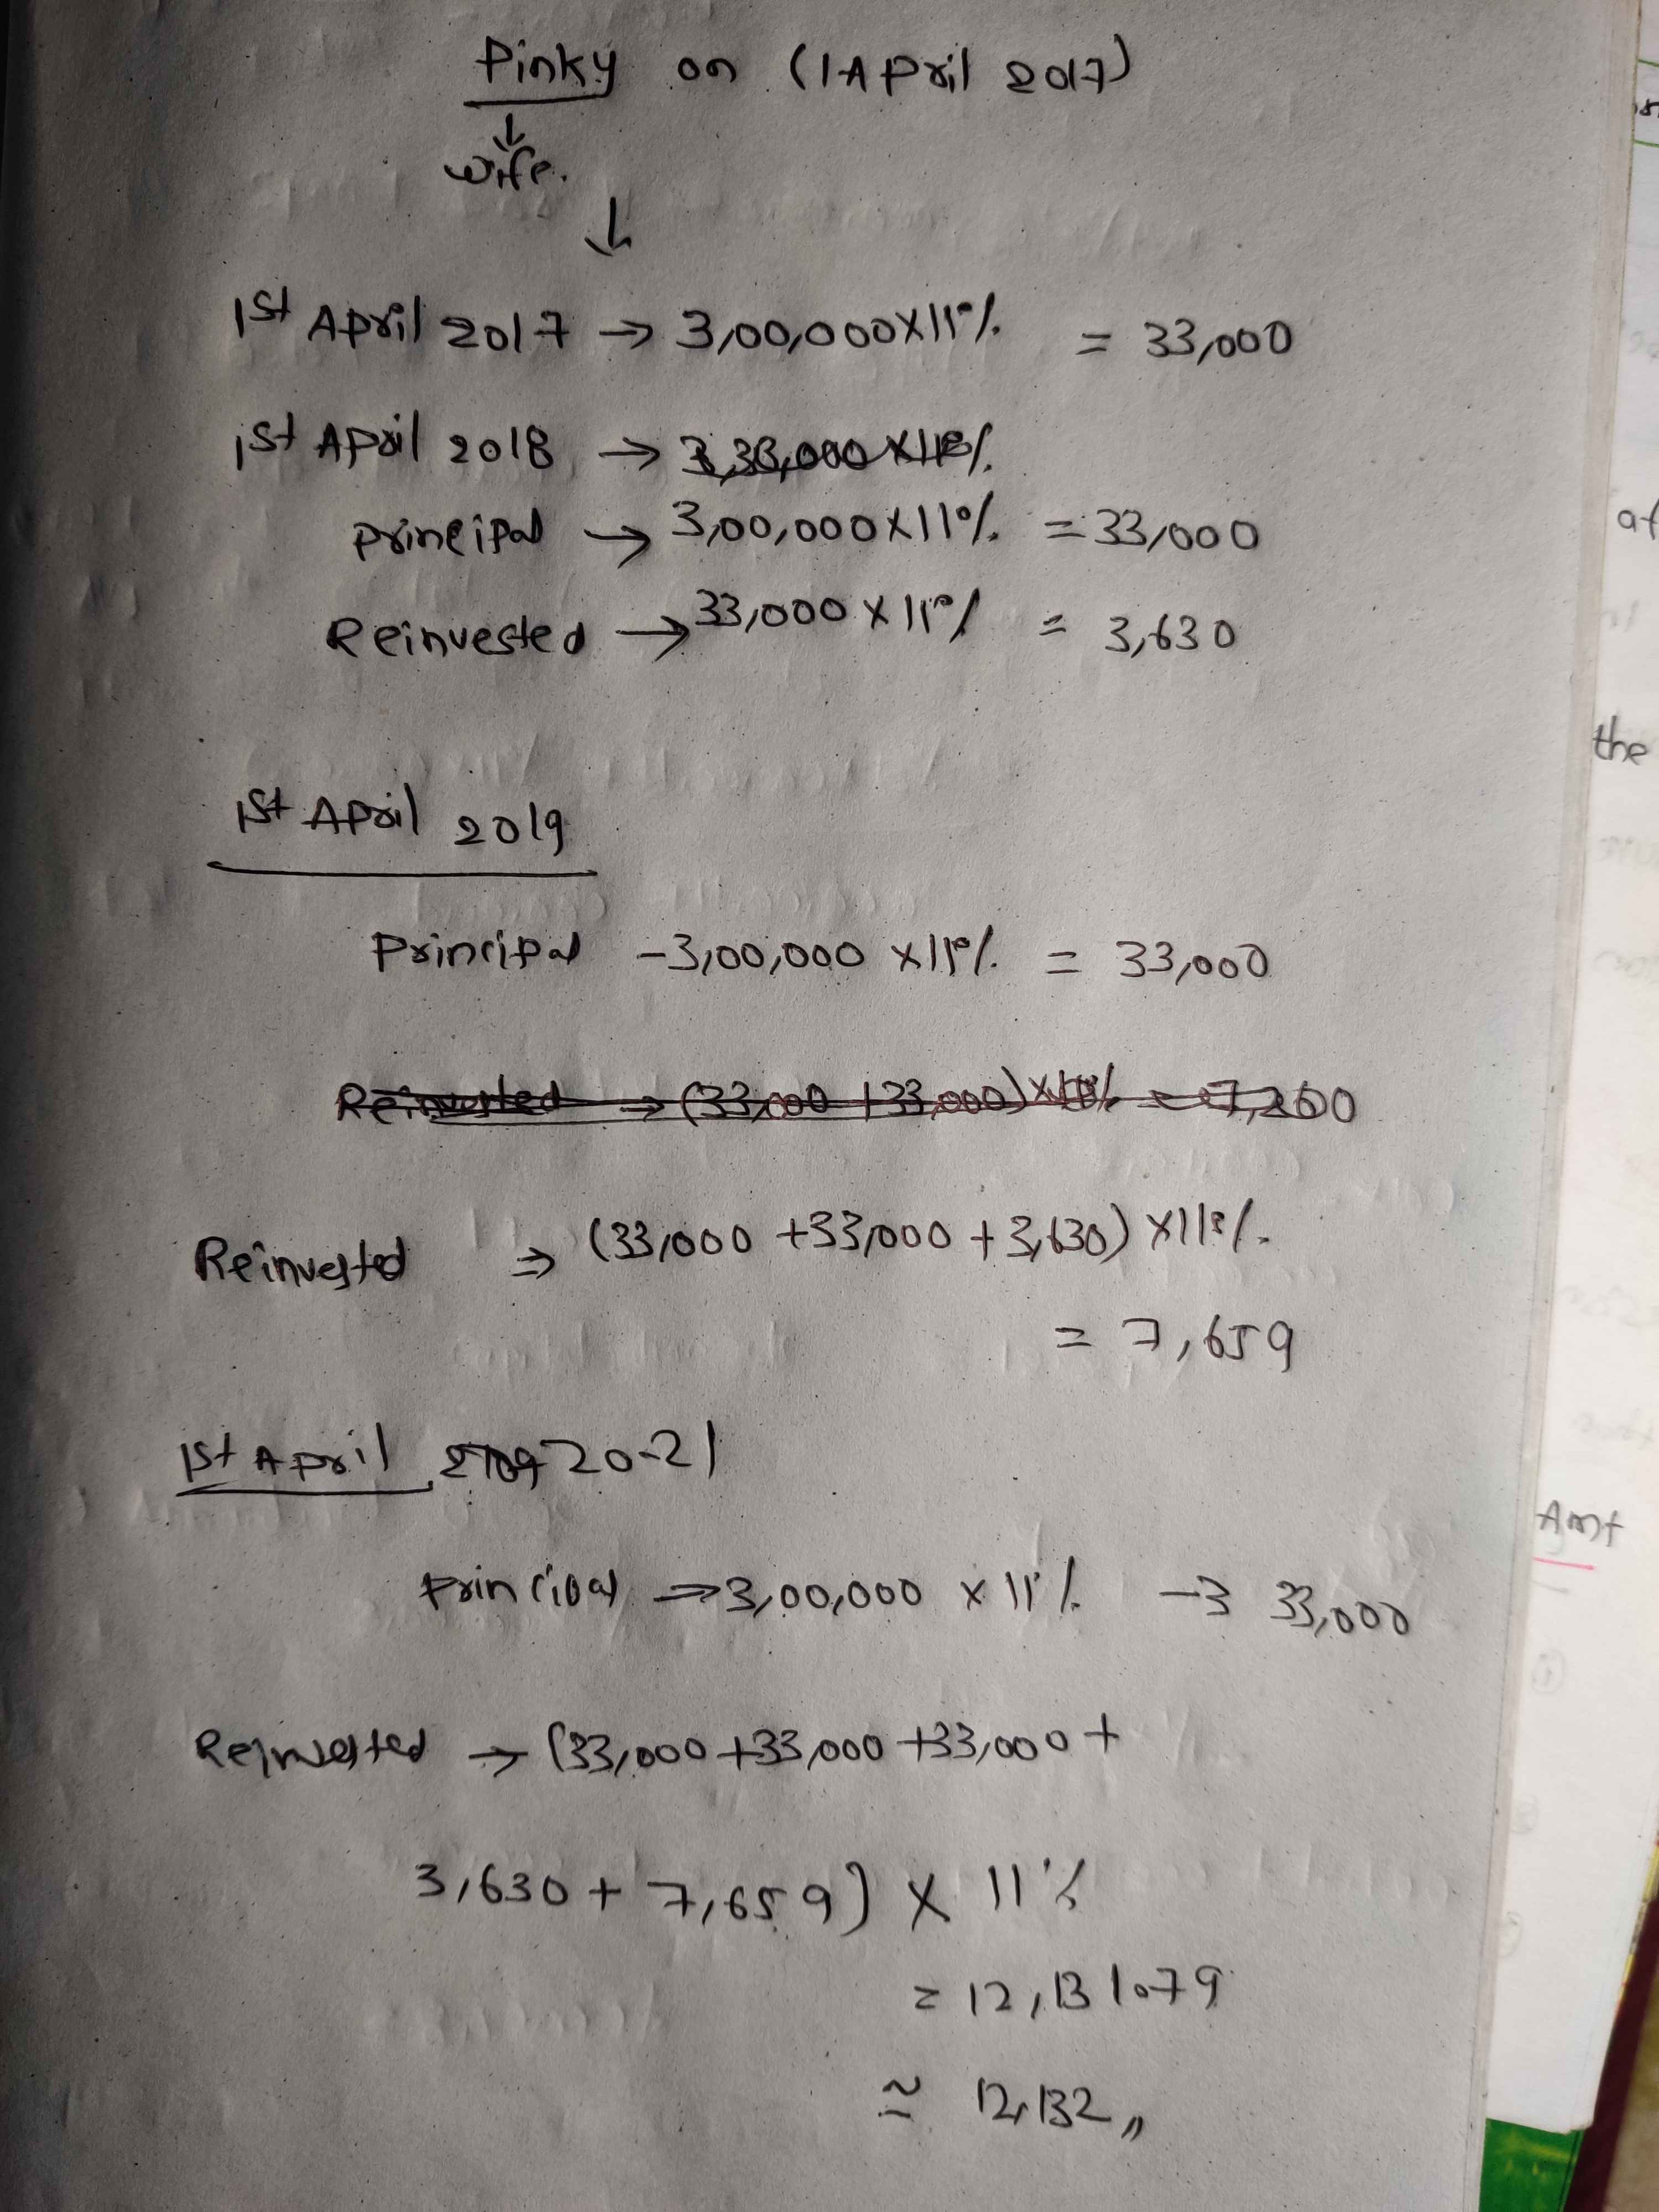 Pinky on (1 April 2017)
↓
wife.
↓
1st April 2017 → 3,00,000 x 11% = 33,000
1st April 2018 → 3,33,000 x 11%
principal → 3,00,000 x 11% = 33,000
Reinvested → 33,000 x 11% = 3,630
1st April 2019
Principal - 3,00,000 x 11% = 33,000
Reinvested → (33,000 + 33,000) x 11% = 7,260
Reinvested ⇒ (33,000 + 33,000 + 3,630) x 11%.
= 7,659
1st April 20-21
Principal ⇒ 3,00,000 x 11% → 33,000
Reinvested → (33,000 + 33,000 + 33,000 +
3,630 + 7,659) x 11%
= 12,131.79
≈ 12,132 〃
at
the
Amt